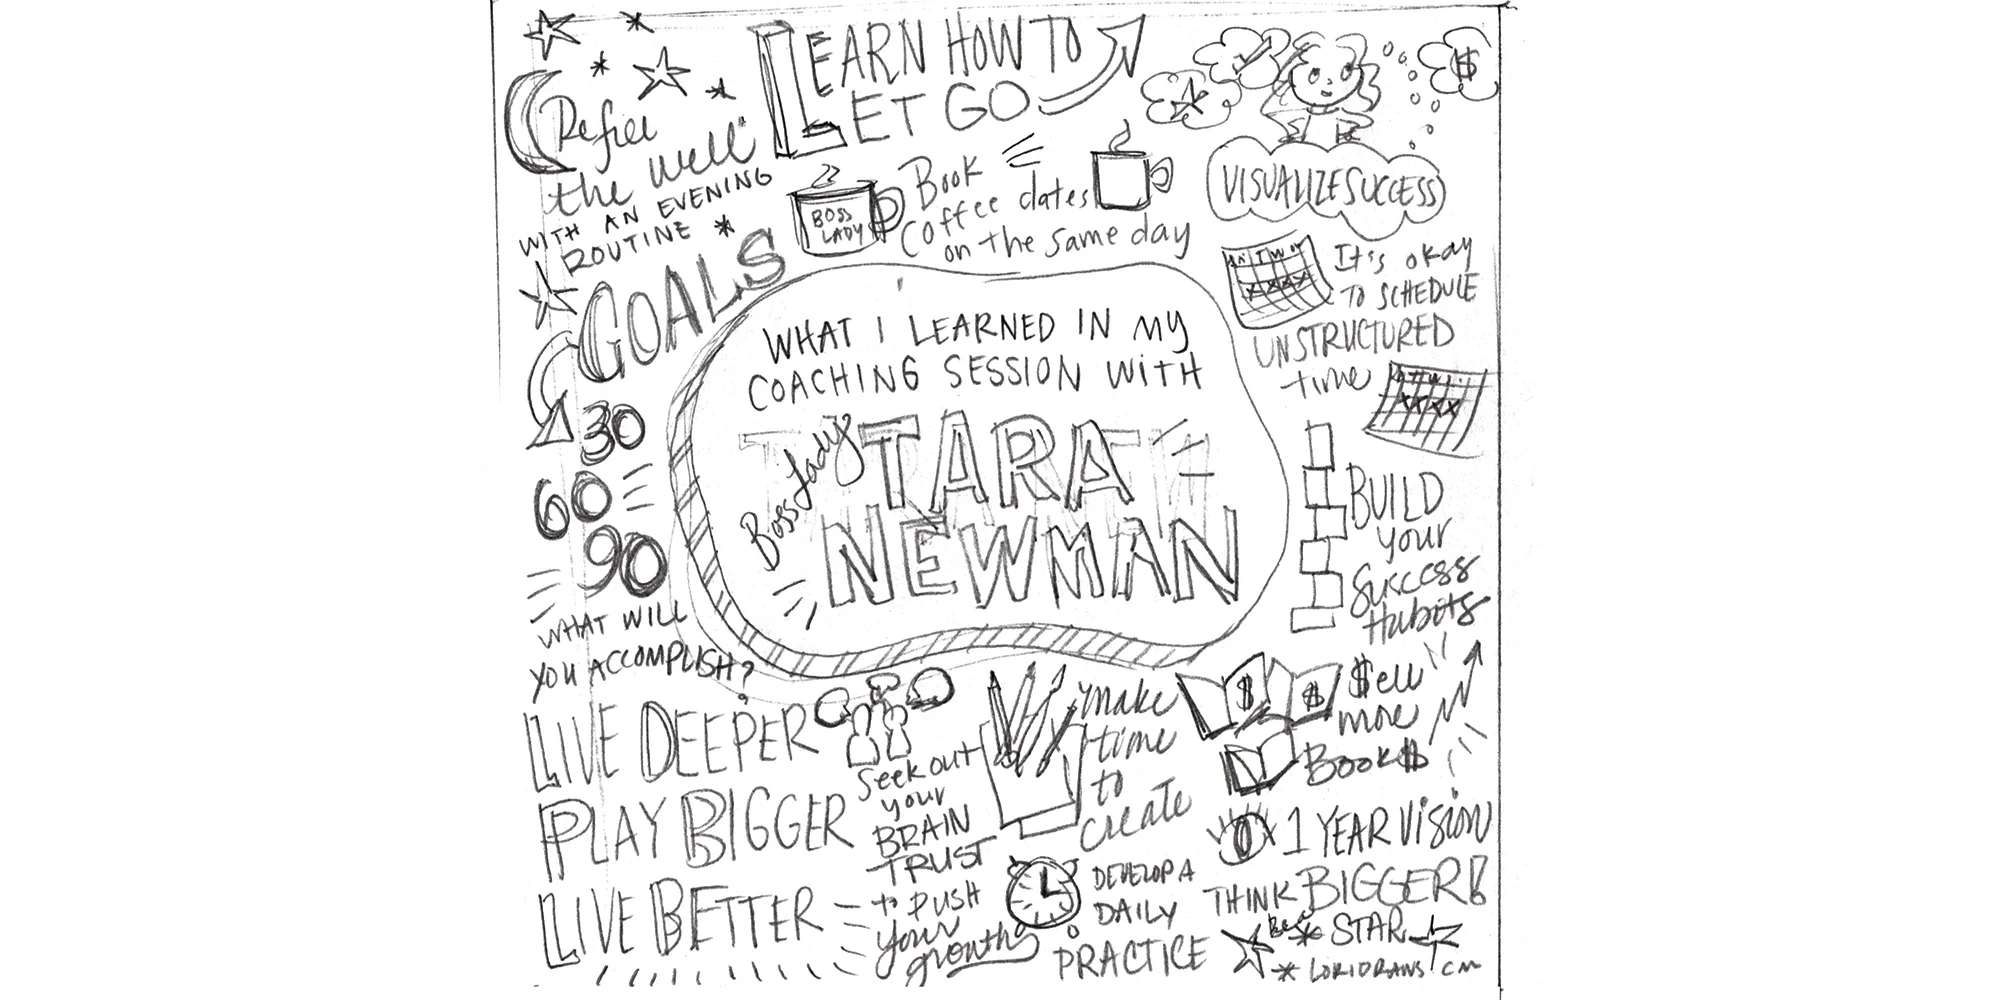 LEARN HOW TO
LET GO
Refill
the well"
WITH AN EVENING
ROUTINE
BOSS
LADY
Book
Coffee dates
on the same day
$
VISUALIZE SUCCESS
It's okay
TO SCHEDULE
UNSTRUCTURED
time
GOALS
30
60
90
WHAT WILL
YOU ACCOMPLISH?
WHAT I LEARNED IN MY
COACHING SESSION WITH
Boss Lady
TARA
NEWMAN
BUILD
your
Success
Habits
LIVE DEEPER
PLAY BIGGER
LIVE BETTER
Seek out
your
BRAIN
TRUST
to PUSH
your
growth
make
time
to
create
$ $
$ell
more
Book$
DEVELOP A
DAILY
PRACTICE
1 YEAR Vision
THINK BIGGER!
Be a STAR